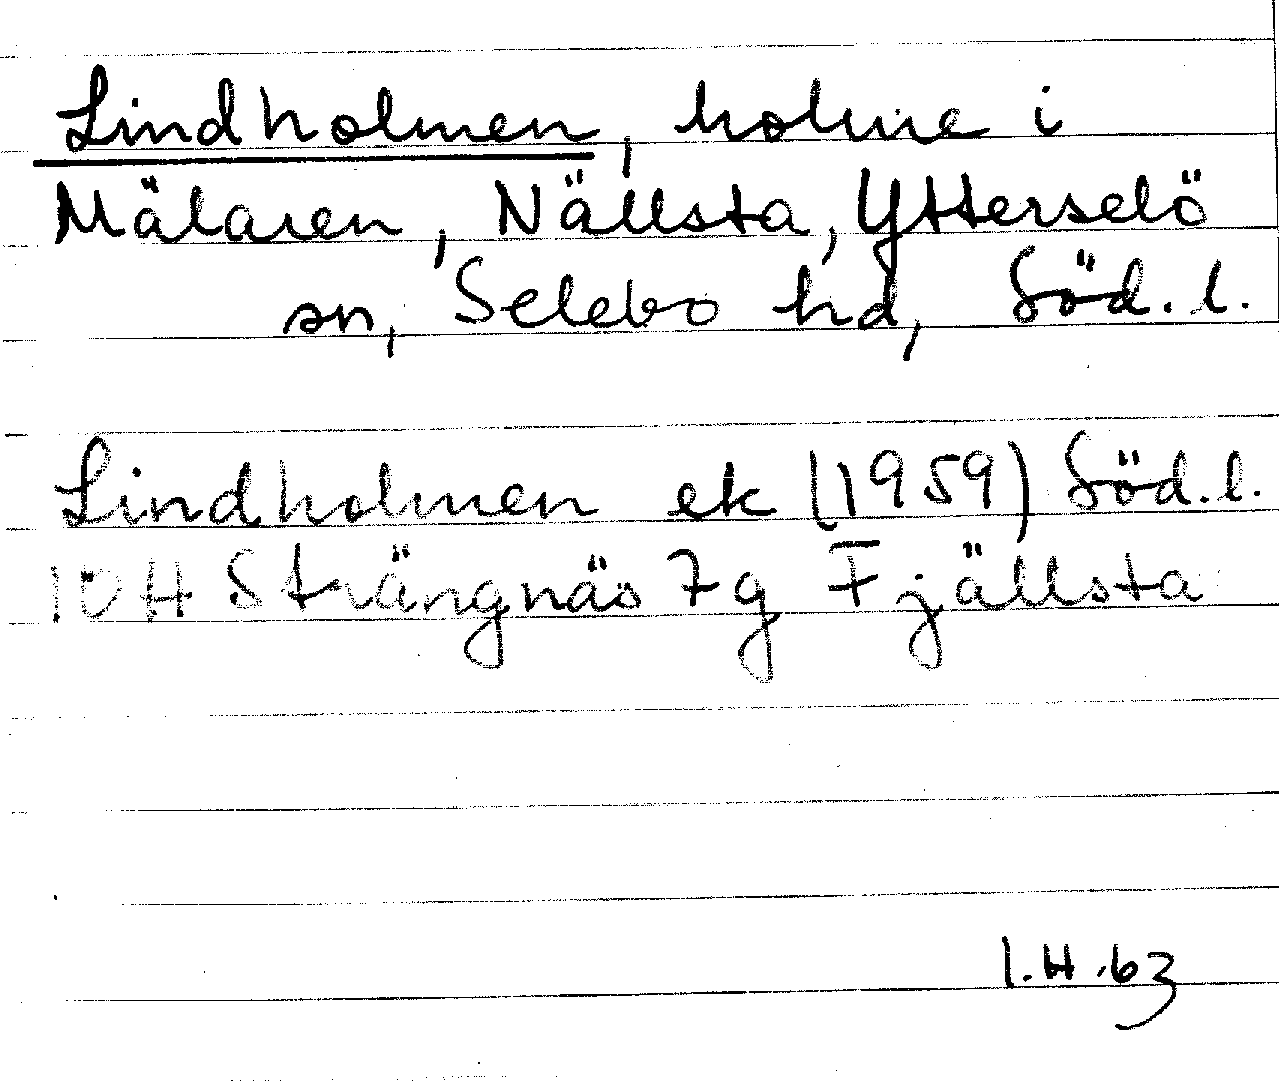 Lindholmen, holme i
Mälaren, Nällsta, Ytterselö
sn, Selebo hd, Söd. l.
Lindholmen ek (1959) Söd. l.
10H Strängnäs 7g Fjällsta
I.H.63